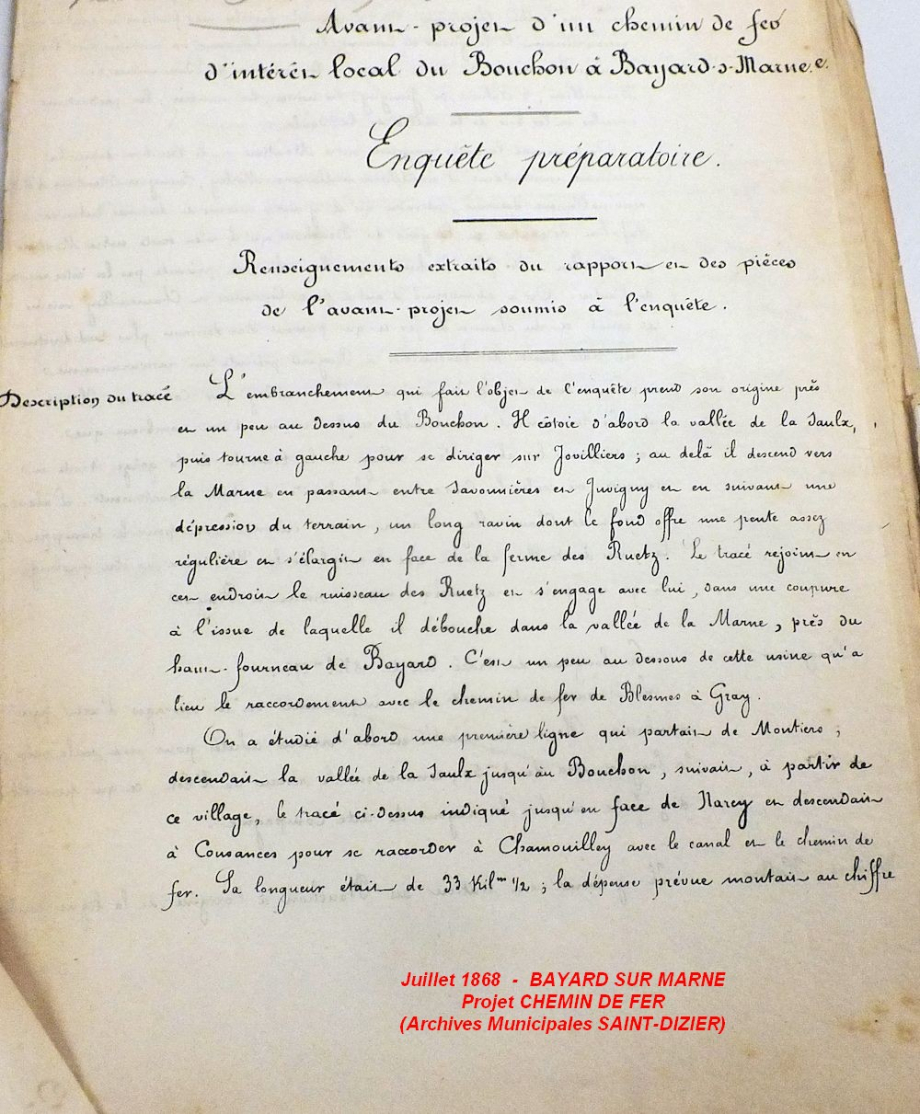 Avant-projet d'un chemin de fer
d'intérêt local du Bouchon à Bayard-s-Marne.
Enquête préparatoire.
Renseignements extraits du rapport et des pièces
de l'avant-projet soumis à l'enquête.
Description du tracé
L'embranchement qui fait l'objet de l'enquête prend son origine près
et un peu au dessus du Bouchon. Il côtoie d'abord la vallée de la Saulx,
puis tourne à gauche pour se diriger sur Jovilliers ; au delà il descend vers
la Marne en passant entre Savonnières et Juvigny et en suivant une
dépression du terrain, un long ravin dont le fond offre une pente assez
régulière et s'élargit en face de la ferme des Ruetz. Le tracé rejoint en
cet endroit le ruisseau des Ruetz et s'engage avec lui, dans une coupure
à l'issue de laquelle il débouche dans la vallée de la Marne, près du
haut-fourneau de Bayard. C'est un peu au dessous de cette usine qu'a
lieu le raccordement avec le chemin de fer de Blesmes à Gray.
On a étudié d'abord une première ligne qui partait de Montiers ;
descendait la vallée de la Saulx jusqu'au Bouchon, suivait, à partir de
ce village, le tracé ci-dessus indiqué jusqu'en face de Narcy et descendait
à Cousances pour se raccorder à Chamouilley avec le canal et le chemin de
fer. Sa longueur était de 33 Kil^m 1/2 ; la dépense prévue montait au chiffre
Juillet 1868 - BAYARD SUR MARNE
Projet CHEMIN DE FER
(Archives Municipales SAINT-DIZIER)